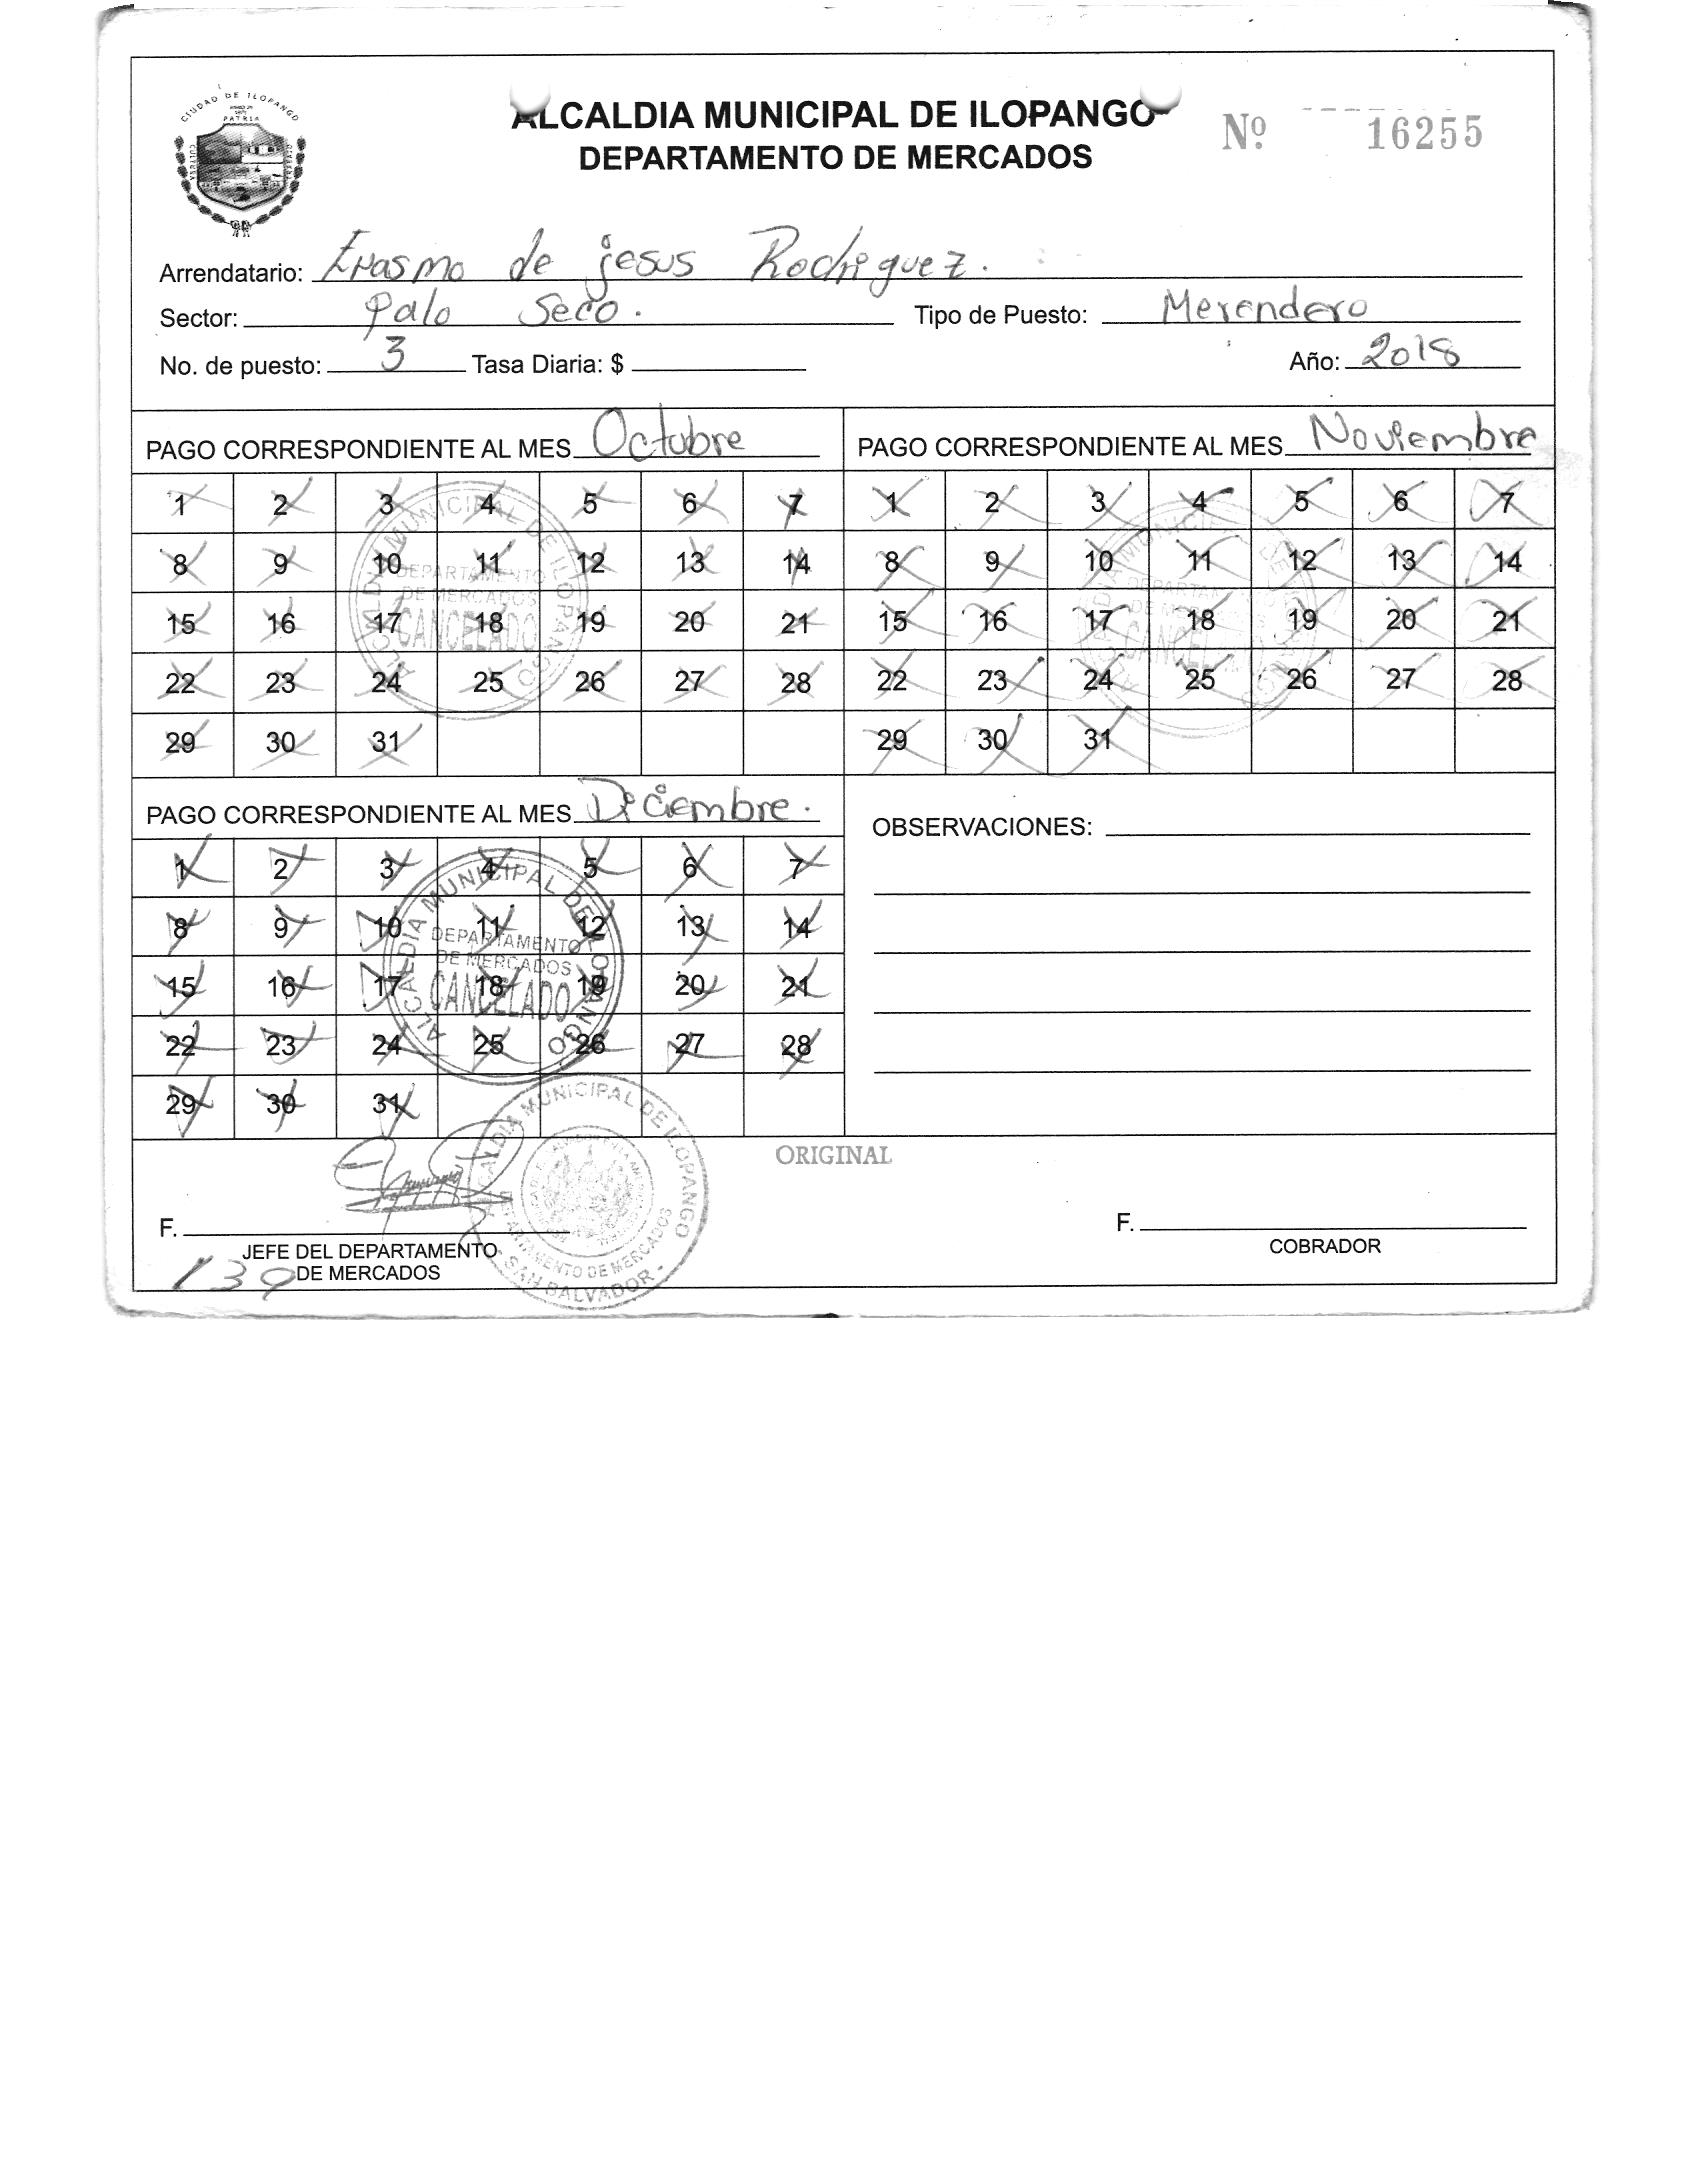 CIUDAD DE ILOPANGO
PATRIA
CULTURA
TRABAJO
ALCALDIA MUNICIPAL DE ILOPANGO
DEPARTAMENTO DE MERCADOS
Nº 16255
Arrendatario: Erasmo de jesus Rodriguez.
Sector: Palo Seco. Tipo de Puesto: Merendero
No. de puesto: 3 Tasa Diaria: $ Año: 2018
PAGO CORRESPONDIENTE AL MES Octubre
1 2 3 4 5 6 7
8 9 10 11 12 13 14
15 16 17 18 19 20 21
22 23 24 25 26 27 28
29 30 31
ALCALDIA MUNICIPAL DE ILOPANGO
DEPARTAMENTO
DE MERCADOS
CANCELADO
PAGO CORRESPONDIENTE AL MES Noviembre
1 2 3 4 5 6 7
8 9 10 11 12 13 14
15 16 17 18 19 20 21
22 23 24 25 26 27 28
29 30 31
ALCALDIA MUNICIPAL DE ILOPANGO
DEPARTAMENTO
DE MERCADOS
CANCELADO
PAGO CORRESPONDIENTE AL MES Diciembre.
1 2 3 4 5 6 7
8 9 10 11 12 13 14
15 16 17 18 19 20 21
22 23 24 25 26 27 28
29 30 31
ALCALDIA MUNICIPAL DE ILOPANGO
DEPARTAMENTO
DE MERCADOS
CANCELADO
OBSERVACIONES:
ORIGINAL
ALCALDIA MUNICIPAL DE ILOPANGO
DEPARTAMENTO DE MERCADOS
SAN SALVADOR
F.
JEFE DEL DEPARTAMENTO
DE MERCADOS
139
F.
COBRADOR